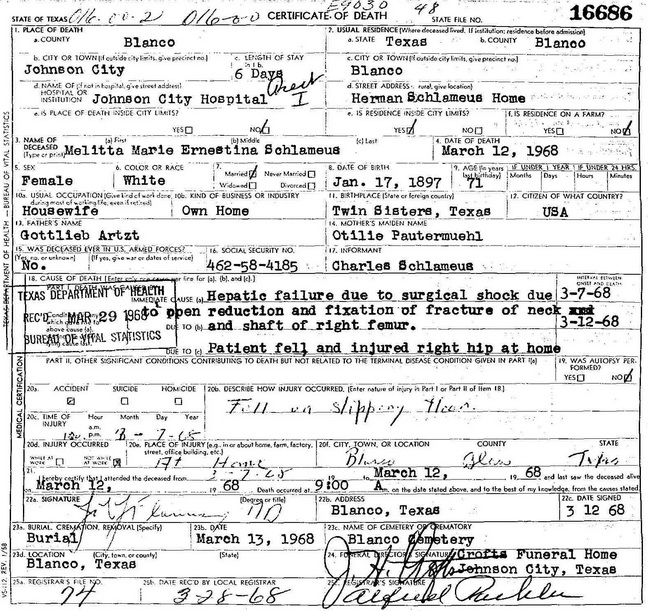 E9030 48
STATE OF TEXAS 016.00-2 016-0-0 CERTIFICATE OF DEATH STATE FILE NO. 16686
1. PLACE OF DEATH 2. USUAL RESIDENCE (Where deceased lived. If institution: residence before admission)
a. COUNTY Blanco a. STATE Texas b. COUNTY Blanco
b. CITY OR TOWN (If outside city limits, give precinct no.) c. LENGTH OF STAY c. CITY OR TOWN (If outside city limits, give precinct no.)
Johnson City 6 Days Blanco
d. NAME OF (If not in hospital, give street address) d. STREET ADDRESS rural, give location)
HOSPITAL OR INSTITUTION Johnson City Hospital Herman Schlameus Home
e. IS PLACE OF DEATH INSIDE CITY LIMITS? e. IS RESIDENCE INSIDE CITY LIMITS? f. IS RESIDENCE ON A FARM?
YES NO YES NO YES NO
3. NAME OF DECEASED (a) First (b) Middle (c) Last 4. DATE OF DEATH
(Type or print) Melitta Marie Ernestina Schlameus March 12, 1968
5. SEX 6. COLOR OR RACE 7. Married Never Married 8. DATE OF BIRTH 9. AGE (In years last birthday) IF UNDER 1 YEAR IF UNDER 24 HRS.
Female White Widowed Divorced Jan. 17, 1897 71 Months Days Hours Minutes
10a. USUAL OCCUPATION (Give kind of work done during most of working life, even if retired) 10b. KIND OF BUSINESS OR INDUSTRY 11. BIRTHPLACE (State or foreign country) 12. CITIZEN OF WHAT COUNTRY?
Housewife Own Home Twin Sisters, Texas USA
13. FATHER'S NAME 14. MOTHER'S MAIDEN NAME
Gottlieb Artzt Otilie Pautermuehl
15. WAS DECEASED EVER IN U.S. ARMED FORCES? 16. SOCIAL SECURITY NO. 17. INFORMANT
(Yes, no, or unknown) (If yes, give war or dates of service)
No. 462-58-4185 Charles Schlameus
18. CAUSE OF DEATH [Enter only one cause per line for (a), (b), and (c).] INTERVAL BETWEEN ONSET AND DEATH
PART I. DEATH WAS CAUSED BY:
TEXAS DEPARTMENT OF HEALTH
IMMEDIATE CAUSE (a) Hepatic failure due to surgical shock due 3-7-68
REC'D MAR 29 1968 to open reduction and fixation of fracture of neck and
DUE TO (b) and shaft of right femur. 3-12-68
BUREAU OF VITAL STATISTICS
DUE TO (c) Patient fell and injured right hip at home
PART II. OTHER SIGNIFICANT CONDITIONS CONTRIBUTING TO DEATH BUT NOT RELATED TO THE TERMINAL DISEASE CONDITION GIVEN IN PART I(a) 19. WAS AUTOPSY PERFORMED?
YES NO
20a. ACCIDENT SUICIDE HOMICIDE 20b. DESCRIBE HOW INJURY OCCURRED. (Enter nature of injury in Part I or Part II of Item 18.)
Fell on slipping floor.
20c. TIME OF INJURY Hour Month Day Year
a.m. p.m. 3-7-68
20d. INJURY OCCURRED 20e. PLACE OF INJURY (e.g., in or about home, farm, factory, street, office building, etc.) 20f. CITY, TOWN, OR LOCATION COUNTY STATE
WHILE AT WORK NOT WHILE AT WORK At Home Blanco Blanco Texas
21. I hereby certify that I attended the deceased from 3-7-68 19 to March 12, 19 68 and last saw the deceased alive
March 12, 19 68 Death occurred at 9:00 A m. on the date stated above, and to the best of my knowledge, from the causes stated.
22a. SIGNATURE (Degree or title) 22b. ADDRESS 22c. DATE SIGNED
MD Blanco, Texas 3 12 68
23a. BURIAL, CREMATION, REMOVAL (Specify) 23b. DATE 23c. NAME OF CEMETERY OR CREMATORY
Burial March 13, 1968 Blanco Cemetery
23d. LOCATION (City, town, or county) (State) 24. FUNERAL DIRECTOR'S SIGNATURE Crofts Funeral Home
Blanco, Texas Johnson City, Texas
25a. REGISTRAR'S FILE NO. 25b. DATE REC'D BY LOCAL REGISTRAR 25c. REGISTRAR'S SIGNATURE
74 3-28-68
TEXAS DEPARTMENT OF HEALTH — BUREAU OF VITAL STATISTICS
MEDICAL CERTIFICATION
VS-112, REV. 1/58